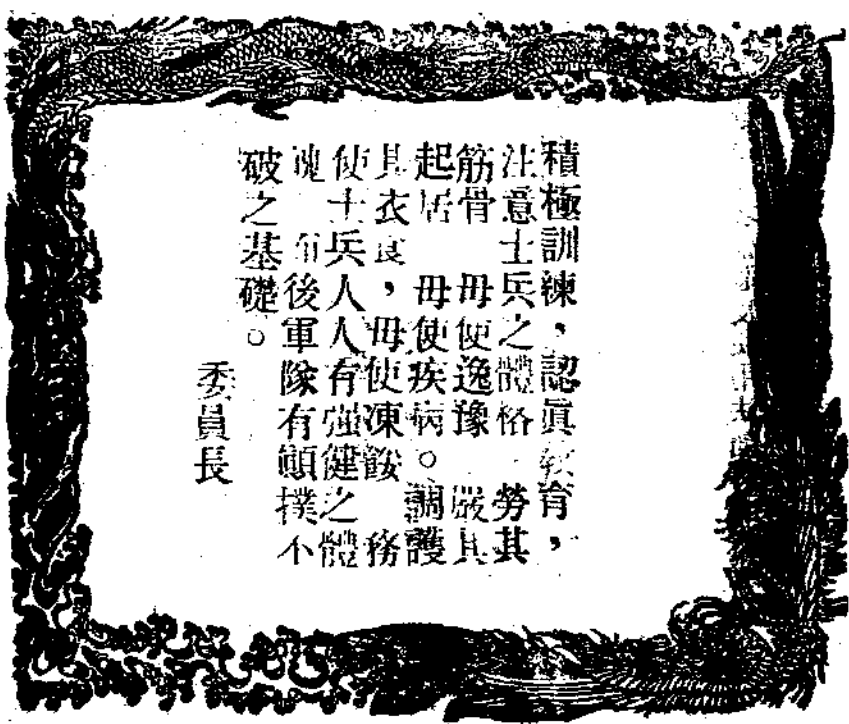 積極訓練，認眞教育，
注意士兵之體格　勞其
筋骨　毋使逸豫　嚴其
起居　毋使疾病。調護
其衣食，毋使凍餒　務
使士兵人人有强健之體
魄　而後軍隊有顚撲不
破之基礎。
委員長